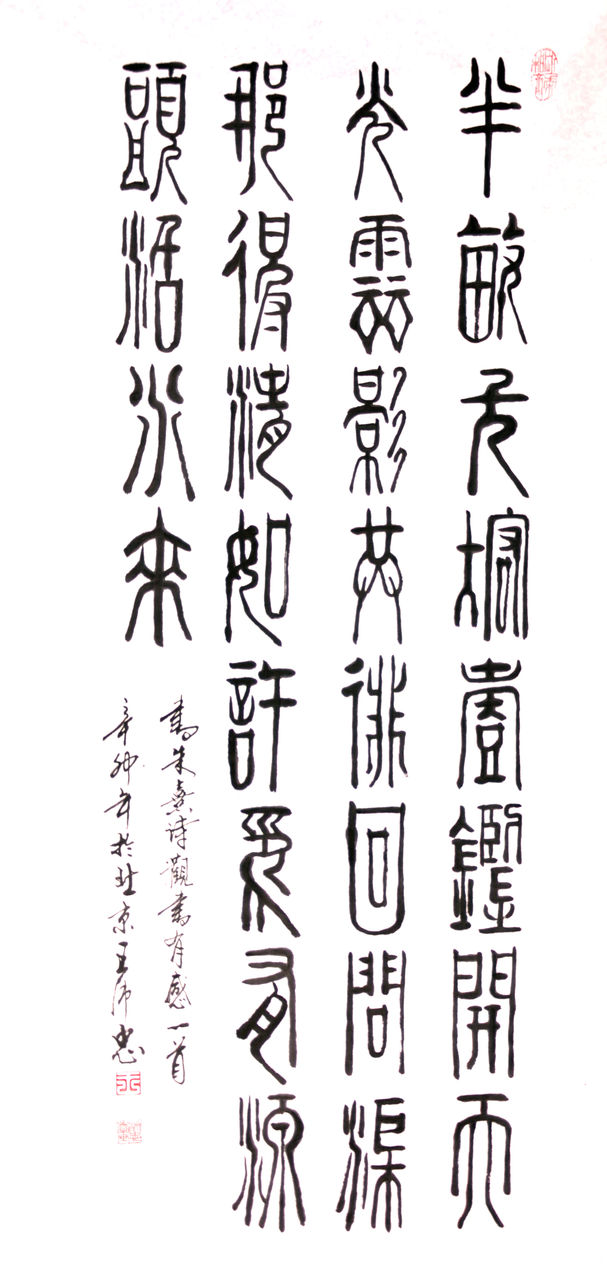 半畝方塘壹鑑開天
光雲影共徘回問渠
那得清如許為有源
頭活水來
書朱熹诗觀書有感一首
辛卯年於北京王沛忠